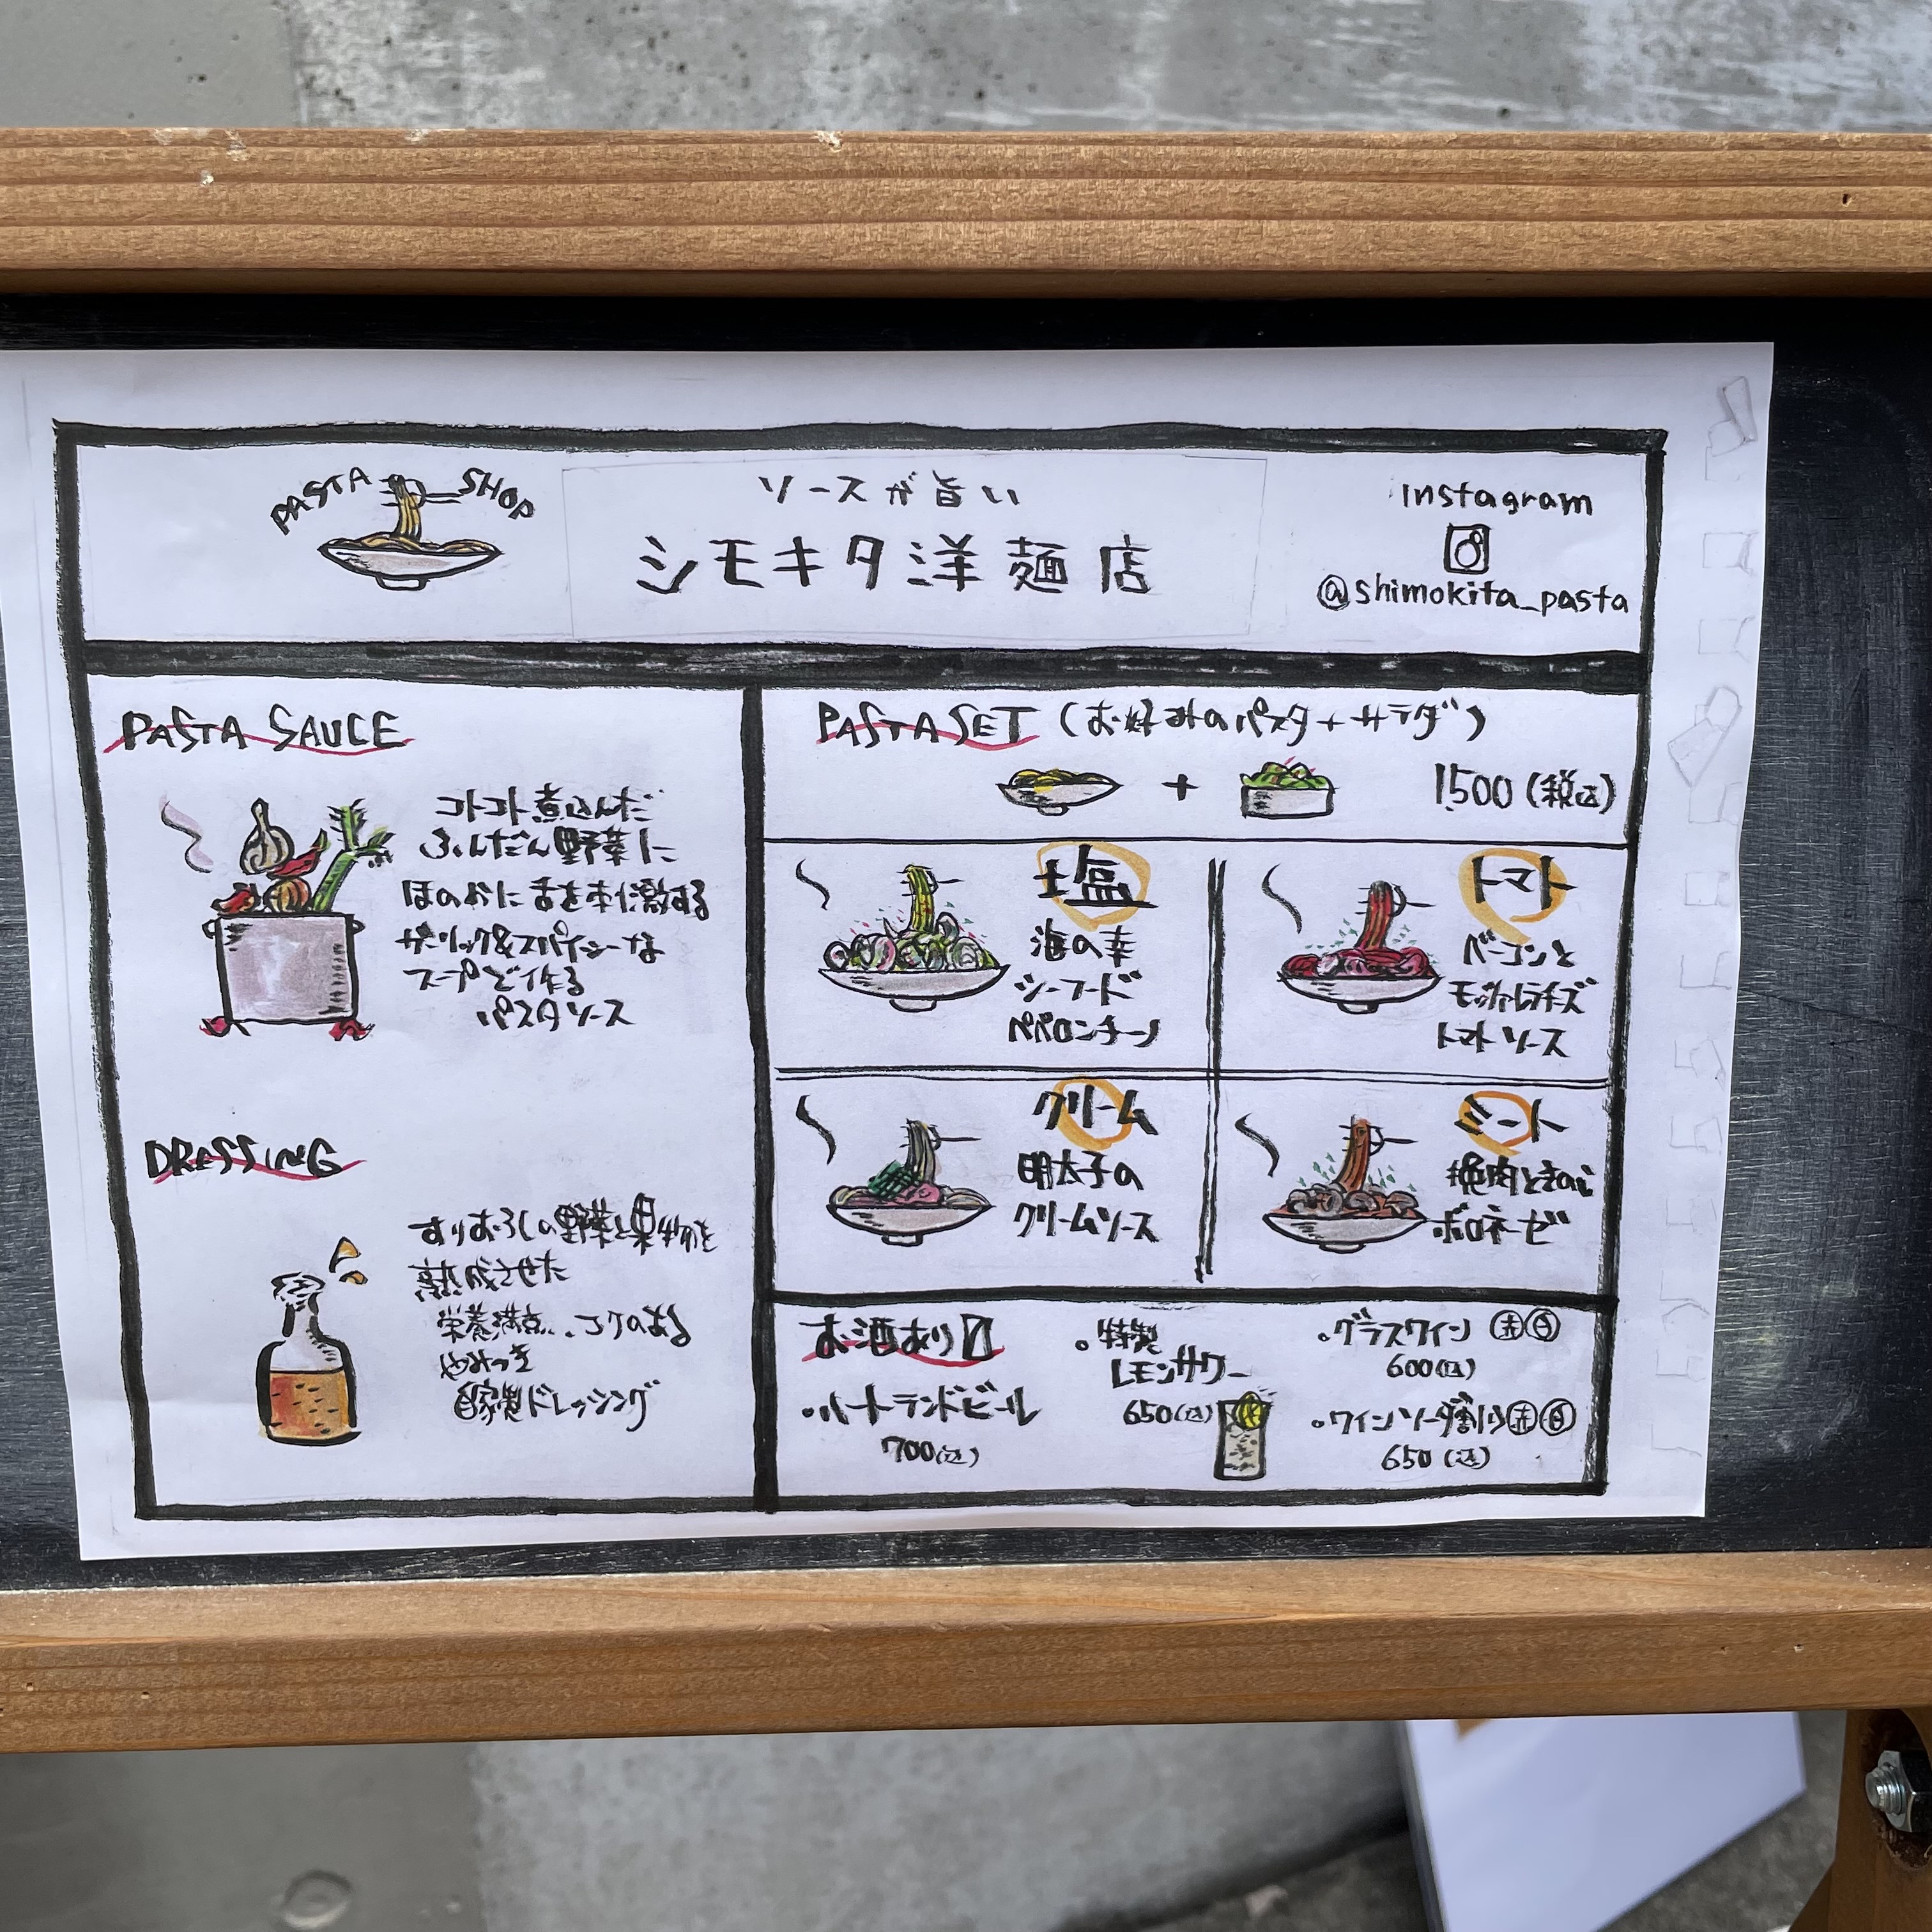 PASTA SHOP
ソースが旨い
シモキタ洋麺店
Instagram
@shimokita_pasta
PASTA SAUCE
コトコト煮込んだ
ふんだん野菜に
ほのかに舌を刺激する
ガーリック&スパイシーな
スープで作る
パスタソース
DRESSING
すりおろしの野菜と果物を
熟成させた
栄養満点、コクのある
やみつき
自家製ドレッシング
PASTA SET (お好みのパスタ+サラダ)
+
1500(税込)
塩
海の幸
シーフード
ペペロンチーノ
トマト
ベーコンと
モッツァレラチーズ
トマトソース
クリーム
明太子の
クリームソース
ミート
挽肉ときのこ
ボロネーゼ
お酒あり
・ハートランドビール
700(込)
・特製
レモンサワー
650(込)
・グラスワイン 赤 白
600(込)
・ワインソーダ割り 赤 白
650(込)